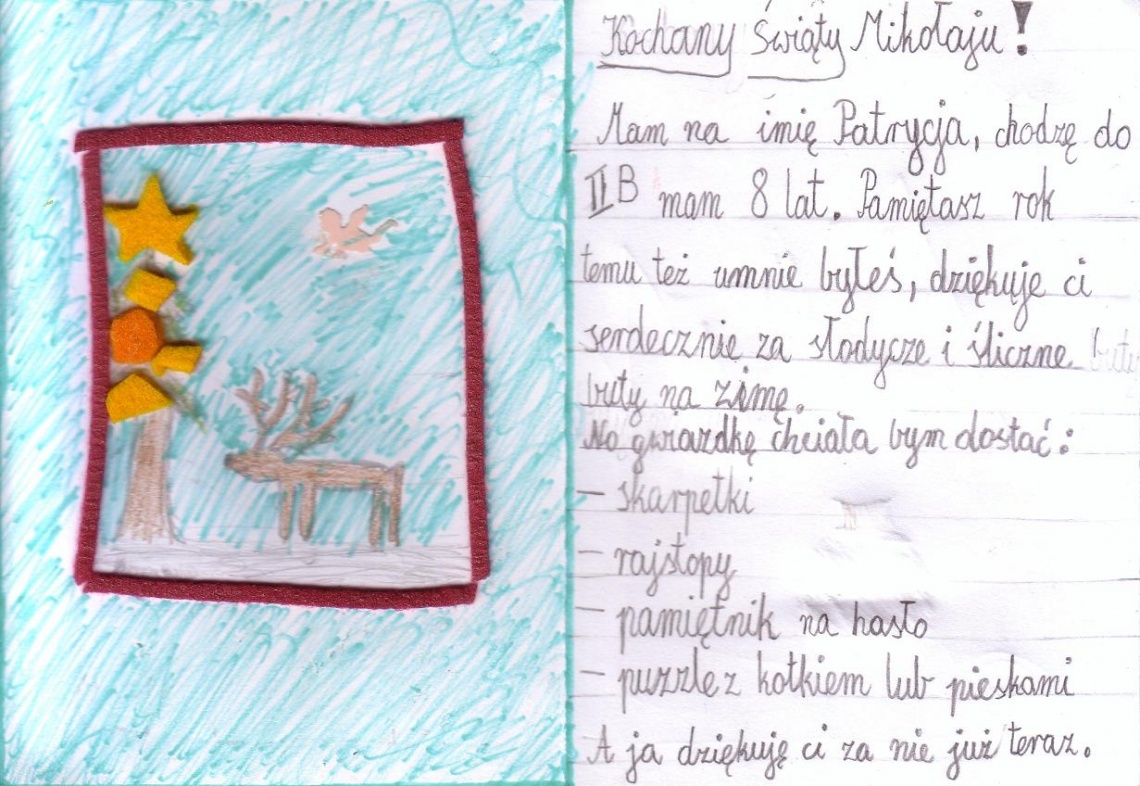 Kochany Święty Mikołaju!
Mam na imię Patrycja, chodzę do
II B mam 8 lat. Pamiętasz rok
temu też umnie byłeś, dziękuje ci
serdecznie za słodycze i śliczne
buty na zimę.
Na gwiazdkę chciała bym dostać:
- skarpetki
- rajstopy
- pamiętnik na hasło
- puzzle z kotkiem lub pieskami
A ja dziękuję ci za nie już teraz.